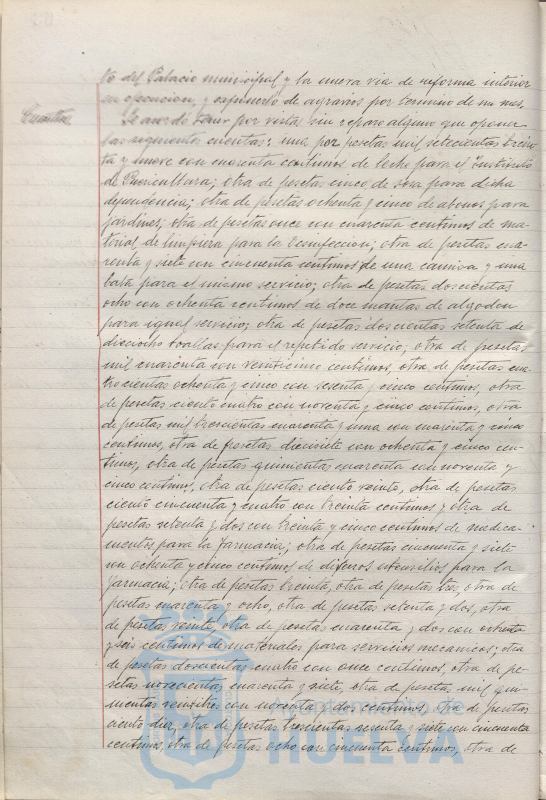 to del Palacio municipal y la nueva via de reforma interior
en operacion, y exponerlo de agravios por termino de un mes.
Cuentas
Se acordó tener por vistas sin reparo alguno que oponer
las siguientes cuentas: una por pesetas mil setecientas trein-
ta y nueve con cuarenta centimos de leche para el Instituto
de Puericultura; otra de pesetas cinco de para dicha
dependencia; otra de pesetas ochenta y cinco de abonos para
jardines; otra de pesetas once con cuarenta centimos de ma-
terial de limpieza para la Desinfeccion; otra de pesetas cua-
renta y siete con cincuenta centimos de una camisa y una
bata para el mismo servicio; otra de pesetas doscientas
ocho con ochenta centimos de doce mantas de algodon
para igual servicio; otra de pesetas doscientas setenta de
dieciocho toallas para el repetido servicio; otra de pesetas
mil cuarenta con veinticinco centimos, otra de pesetas cua-
trocientas ochenta y cinco con sesenta y cinco centimos, otra
de pesetas ciento cuatro con noventa y cinco centimos, otra
de pesetas mil trescientas cuarenta y una con cuarenta y cinco
centimos, otra de pesetas diecisiete con ochenta y cinco cen-
timos, otra de pesetas quinientas cuarenta con noventa y
cinco centimos, otra de pesetas ciento veinte, otra de pesetas
ciento cincuenta y cuatro con treinta centimos y otra de
pesetas setenta y dos con treinta y cinco centimos de medica-
mentos para la farmacia; otra de pesetas cincuenta y siete
con ochenta y cinco centimos de diferos utensilios para la
farmacia; otra de pesetas treinta, otra de pesetas tres, otra de
pesetas cuarenta y ocho, otra de pesetas setenta y dos, otra
de pesetas veinte, otra de pesetas cuarenta y dos con ochenta
y seis centimos de materiales para servicios mecanicos; otra
de pesetas doscientas cuatro con once centimos, otra de pe-
setas novecientas cuarenta y siete, otra de pesetas mil qui-
nientas veintitres con noventa y dos centimos, otra de pesetas
ciento diez, otra de pesetas trescientas sesenta y siete con cincuenta
centimos, otra de pesetas ocho con cincuenta centimos, otra de
HUELVA